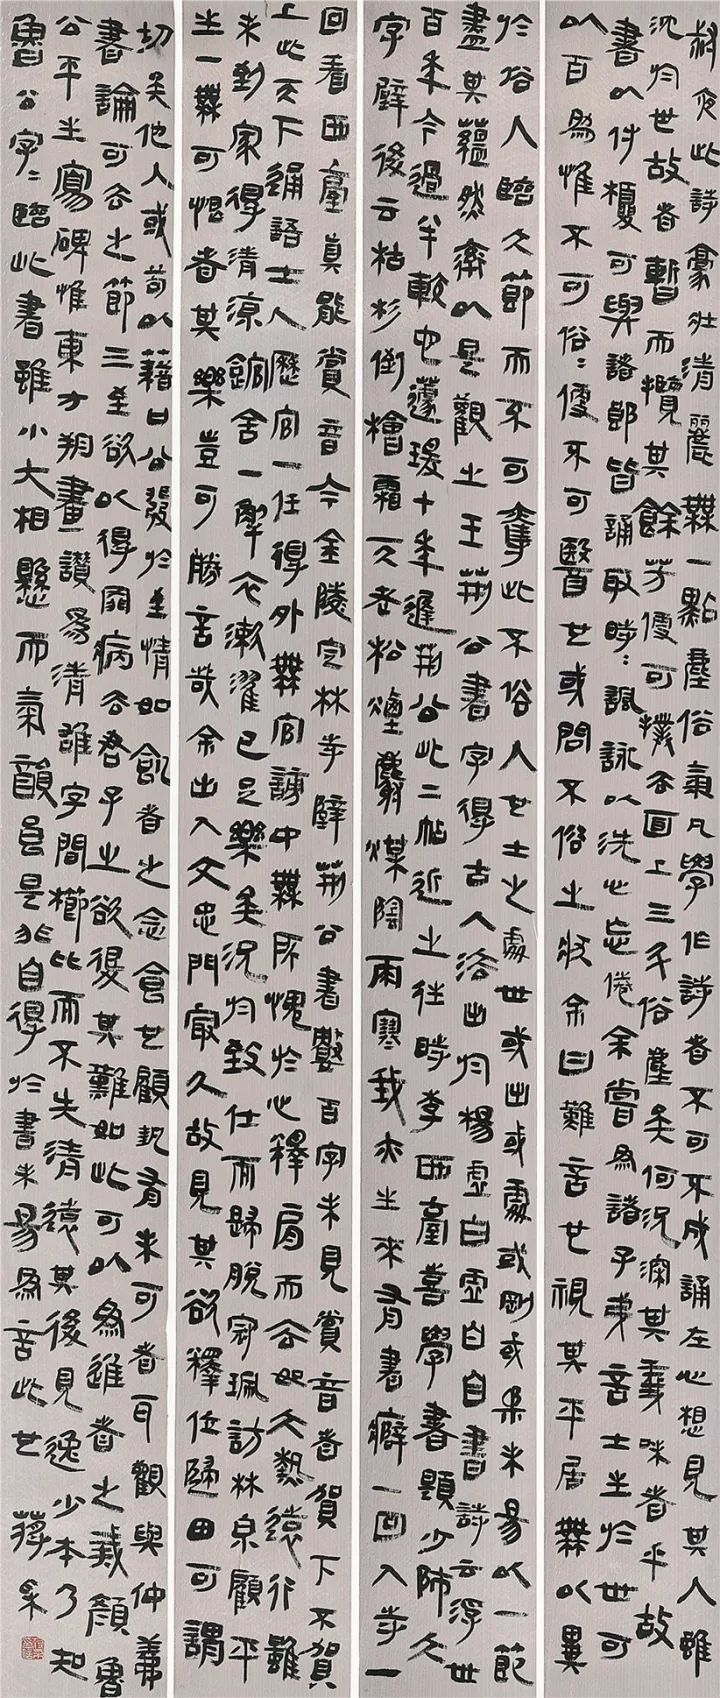 叔夜此詩豪壯清麗無一點塵俗氣凡學作詩者不可不成誦在心想見其人雖
沈於世故者暫而攬其餘芳便可撲去面上三斗俗塵矣何況深其義味者乎故
書以付榎可與諸郎皆誦取時〻諷詠以洗心忘倦余嘗為諸子弟言士生於世可
以百為惟不可俗〻便不可醫也或問不俗之狀余曰難言也視其平居無以異
於俗人臨大節而不可奪此不俗人也士之處世或出或處或剛或柔未易以一節
盡其蘊然率以是觀之王荊公書字得古人法出於楊虛白虛白自書詩云浮世
百年今過半較它蘧瑗十年遲荊公此二帖近之往時李西臺喜學書題少師大
字壁後云枯杉倒檜霜天老松煙麝煤陰雨寒我亦生來有書癖一回入寺一
回看西臺真能賞音今金陵定林寺壁荊公書數百字未見賞音者賀下不賀
上此天下通語士人歷官一任得外無官謗中無所愧於心釋肩而去如大熱遠行雖
未到家得清涼館舍一解衣漱濯已足樂矣況於致仕而歸脫冠珮訪林泉顧平
生一無可恨者其樂豈可勝言哉余出入文忠門最久故見其欲釋位歸田可謂
切矣他人或苟以藉口公發於至情如飢者之念食也顧勢有未可者耳觀與仲義
書論可去之節三至欲以得罪病去君子之欲退其難如此可以為進者之戒顏魯
公平生寫碑惟東方朔畫讚為清雄字間櫛比而不失清遠其後見逸少本乃知
魯公字〻臨此書雖小大相懸而氣韻良是非自得於書未易為言此也 蔣